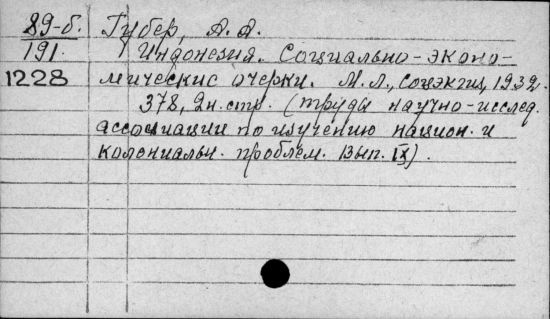 89-б. Губер, А. А.
191. Индонезия. Социально-эконо-
1228 мические очерки. М.Л., соцэкгиз, 1932.
378, 2н. стр. (труды научно-исслед.
ассоциации по изучению национ. и
колониальн. проблем. Вып. IX).